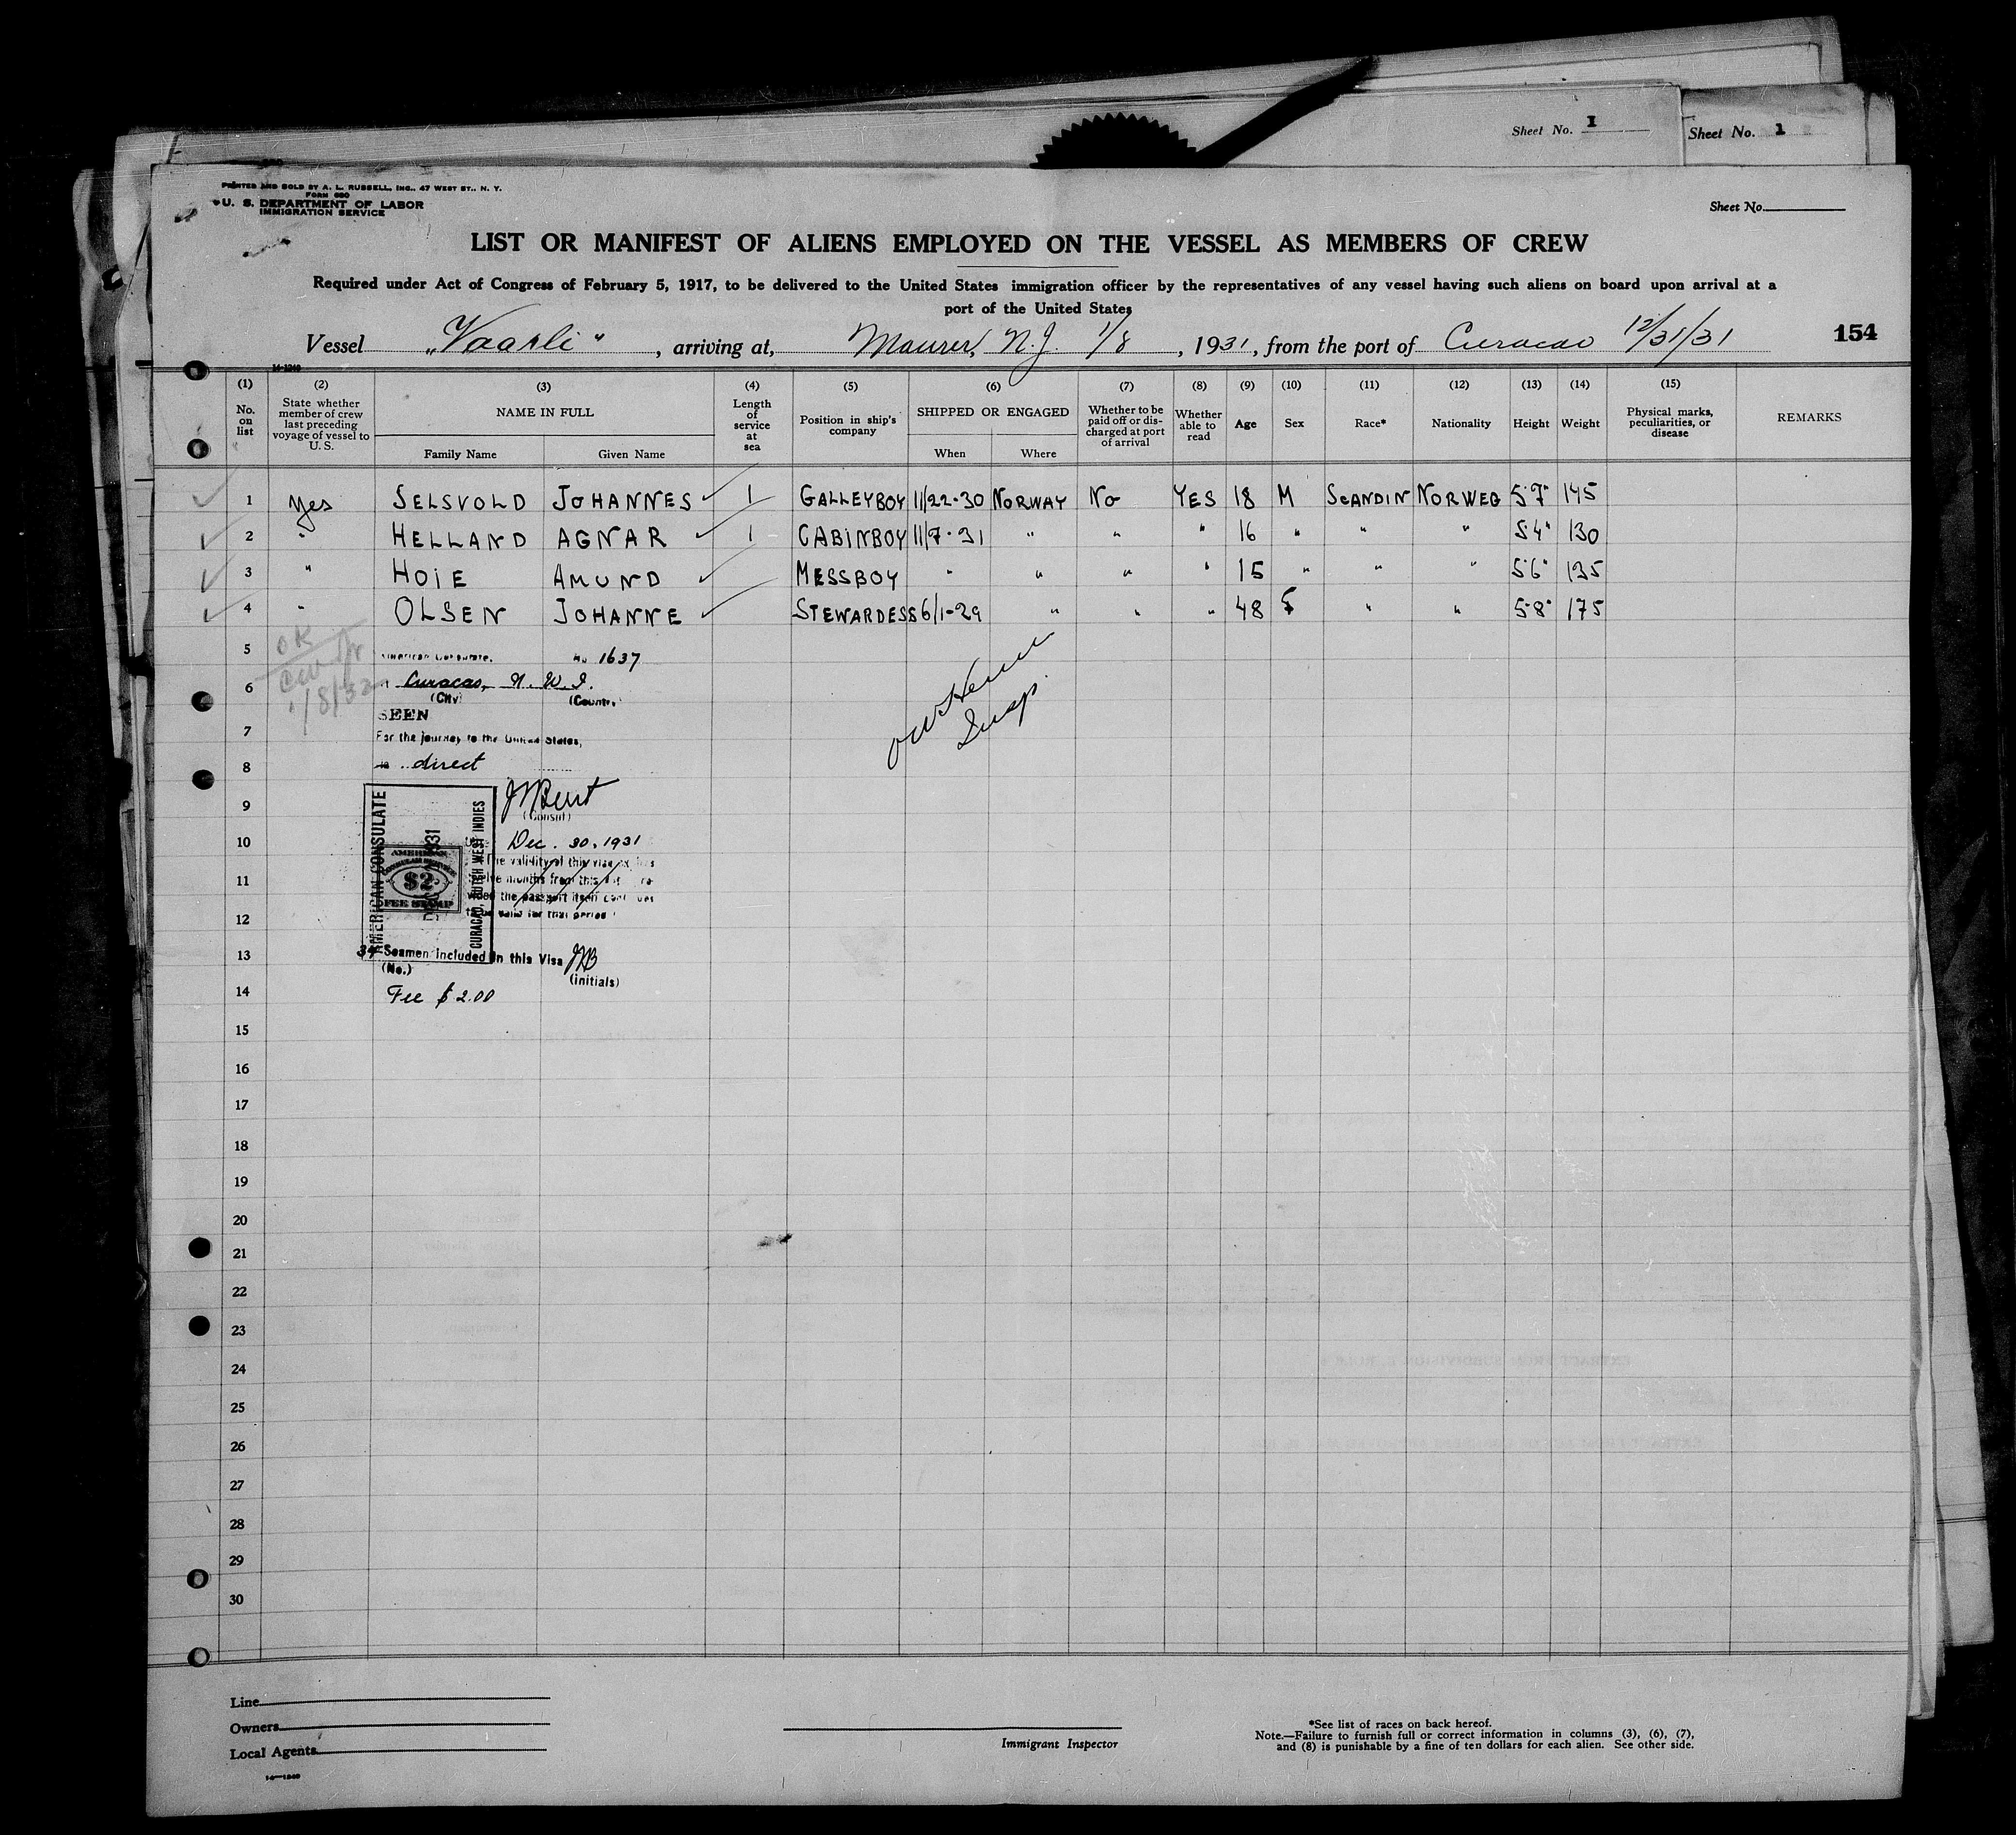 Sheet No. 1
Sheet No. 1
PRINTED AND SOLD BY A. L. RUSSELL, INC., 47 WEST ST., N. Y.
FORM 680
U. S. DEPARTMENT OF LABOR
IMMIGRATION SERVICE
Sheet No.
LIST OR MANIFEST OF ALIENS EMPLOYED ON THE VESSEL AS MEMBERS OF CREW
Required under Act of Congress of February 5, 1917, to be delivered to the United States immigration officer by the representatives of any vessel having such aliens on board upon arrival at a
port of the United States
Vessel „Vaarli“, arriving at, Maurer, N.J. 1/8, 1931, from the port of Curacao 12/31/31 154
14-1240
(1) (2) (3) (4) (5) (6) (7) (8) (9) (10) (11) (12) (13) (14) (15)
No. on list
State whether member of crew last preceding voyage of vessel to U. S.
NAME IN FULL
Family Name Given Name
Length of service at sea
Position in ship's company
SHIPPED OR ENGAGED
When Where
Whether to be paid off or discharged at port of arrival
Whether able to read
Age Sex Race* Nationality Height Weight
Physical marks, peculiarities, or disease
REMARKS
1 Yes SELSVOLD JOHANNES 1 GALLEYBOY 11/22-30 NORWAY NO YES 18 M SCANDIN NORWEG 5'7" 145
2 " HELLAND AGNAR 1 CABINBOY 11/7-31 " " " 16 " " " 5'4" 130
3 " HOIE AMUND MESSBOY " " " " 15 " " " 5'6" 135
4 " OLSEN JOHANNE STEWARDESS 6/1-29 " " " 48 F " " 5'8" 175
5
6
7
8
9
10
11
12
13
14
15
16
17
18
19
20
21
22
23
24
25
26
27
28
29
30
OK
1/8/32
American Consulate. No 1637
Curacao, N. W. I.
(City) (Country)
SEEN
For the journey to the United States,
direct
(Consul)
Dec. 30, 1931
The validity of this visa
months from this
the passport
valid for that period
AMERICAN CONSULATE
CURACAO, DUTCH WEST INDIES
AMERICAN
$2
FEE STAMP
34 Seamen included in this Visa JB
(No.) (initials)
Fee $ 2.00
Insp.
Line
Owners
Local Agents
14-1240
Immigrant Inspector
*See list of races on back hereof.
Note.—Failure to furnish full or correct information in columns (3), (6), (7),
and (8) is punishable by a fine of ten dollars for each alien. See other side.